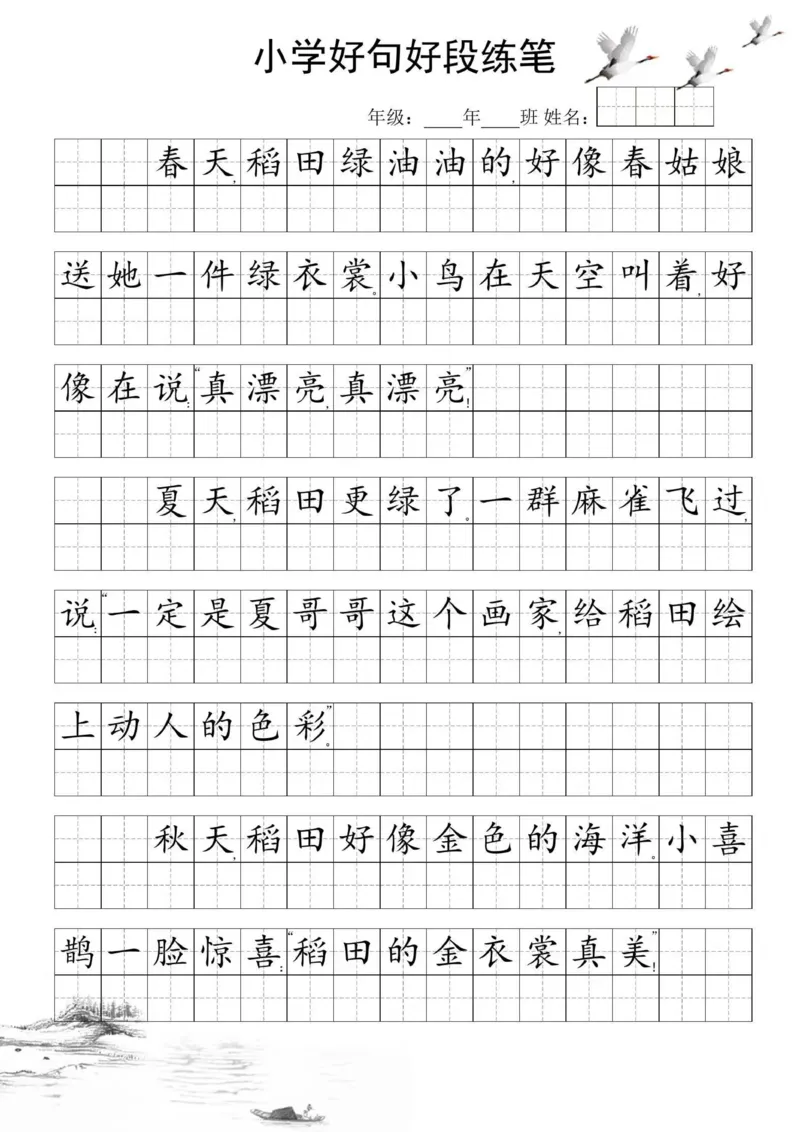 小学好句好段练笔
年级：____年____班 姓名：
春天，稻田绿油油的，好像春姑娘
送她一件绿衣裳。小鸟在天空叫着，好
像在说：“真漂亮，真漂亮！”
夏天，稻田更绿了。一群麻雀飞过，
说：“一定是夏哥哥这个画家，给稻田绘
上动人的色彩。”
秋天，稻田好像金色的海洋。小喜
鹊一脸惊喜：“稻田的金衣裳真美！”